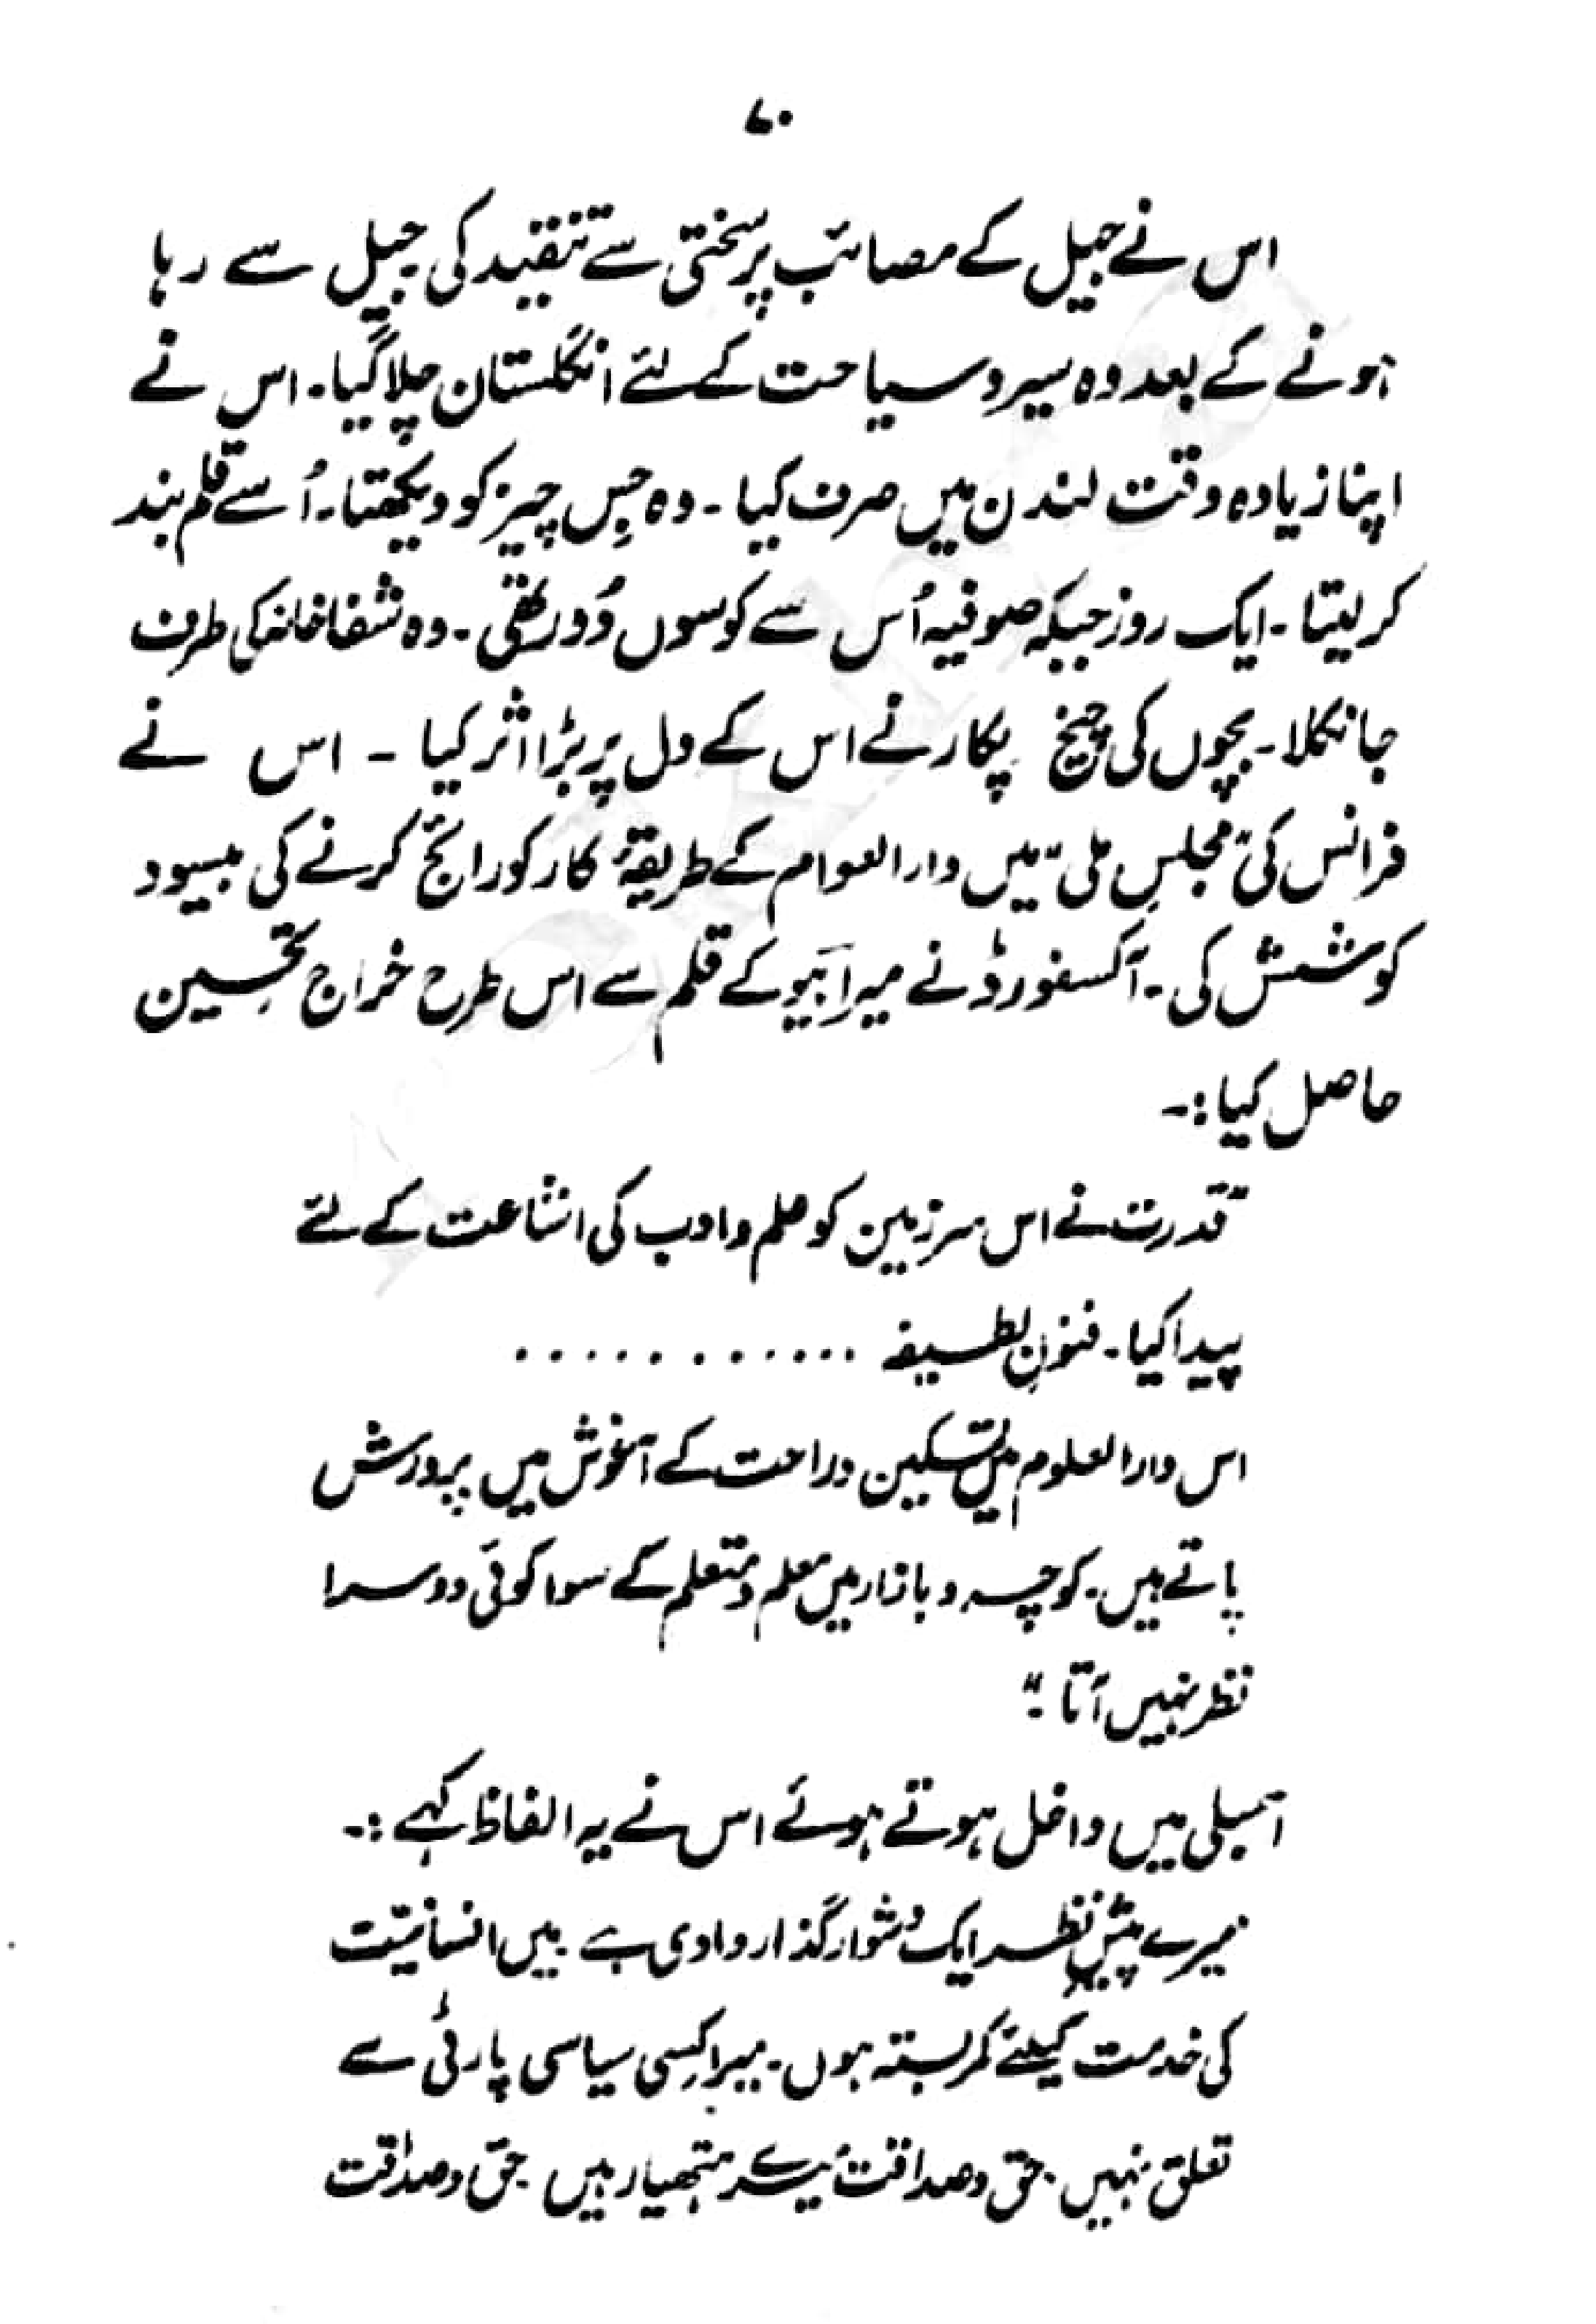 ۷۰
اس نے جیل کے مصائب پر سختی سے تنقید کی جیل سے رہا
ہونے کے بعد وہ سیر و سیاحت کے لئے انگلستان چلا گیا۔ اس نے
اپنا زیادہ وقت لندن میں صرف کیا ۔ وہ جِس چیز کو دیکھتا۔ اُسے قلم بند
کر لیتا ۔ ایک روز جبکہ صوفیہ اُس سے کوسوں دُور تھی ۔ وہ شفاخانہ کی طرف
جا نکلا ۔ بچوں کی چیخ پکار نے اس کے دل پر بڑا اثر کیا ۔ اس نے
فرانس کی "مجلسِ ملی" میں دارالعوام کے طریقۂ کار کو رائج کرنے کی بے سود
کوشش کی ۔ آکسفورڈ نے میرابیو کے قلم سے اس طرح خراج تحسین
حاصل کیا :۔
"قدرت نے اس سرزمین کو علم و ادب کی اشاعت کے لئے
پیدا کیا ۔ فنونِ لطیفہ ............
اس دارالعلوم میں تسکین و راحت کے آغوش میں پرورش
پاتے ہیں۔ کوچہ و بازار میں معلم و متعلم کے سوا کوئی دوسرا
نظر نہیں آتا ۔"
اسمبلی میں داخل ہوتے ہوئے اس نے یہ الفاظ کہے :۔
میرے پیشِ نظر ایک دُشوار گذار وادی ہے ۔ میں انسانیّت
کی خدمت کیلئے کمر بستہ ہوں ۔ میرا کِسی سیاسی پارٹی سے
تعلق نہیں ۔ حق و صداقت میرے ہتھیار ہیں ۔ حق و صداقت